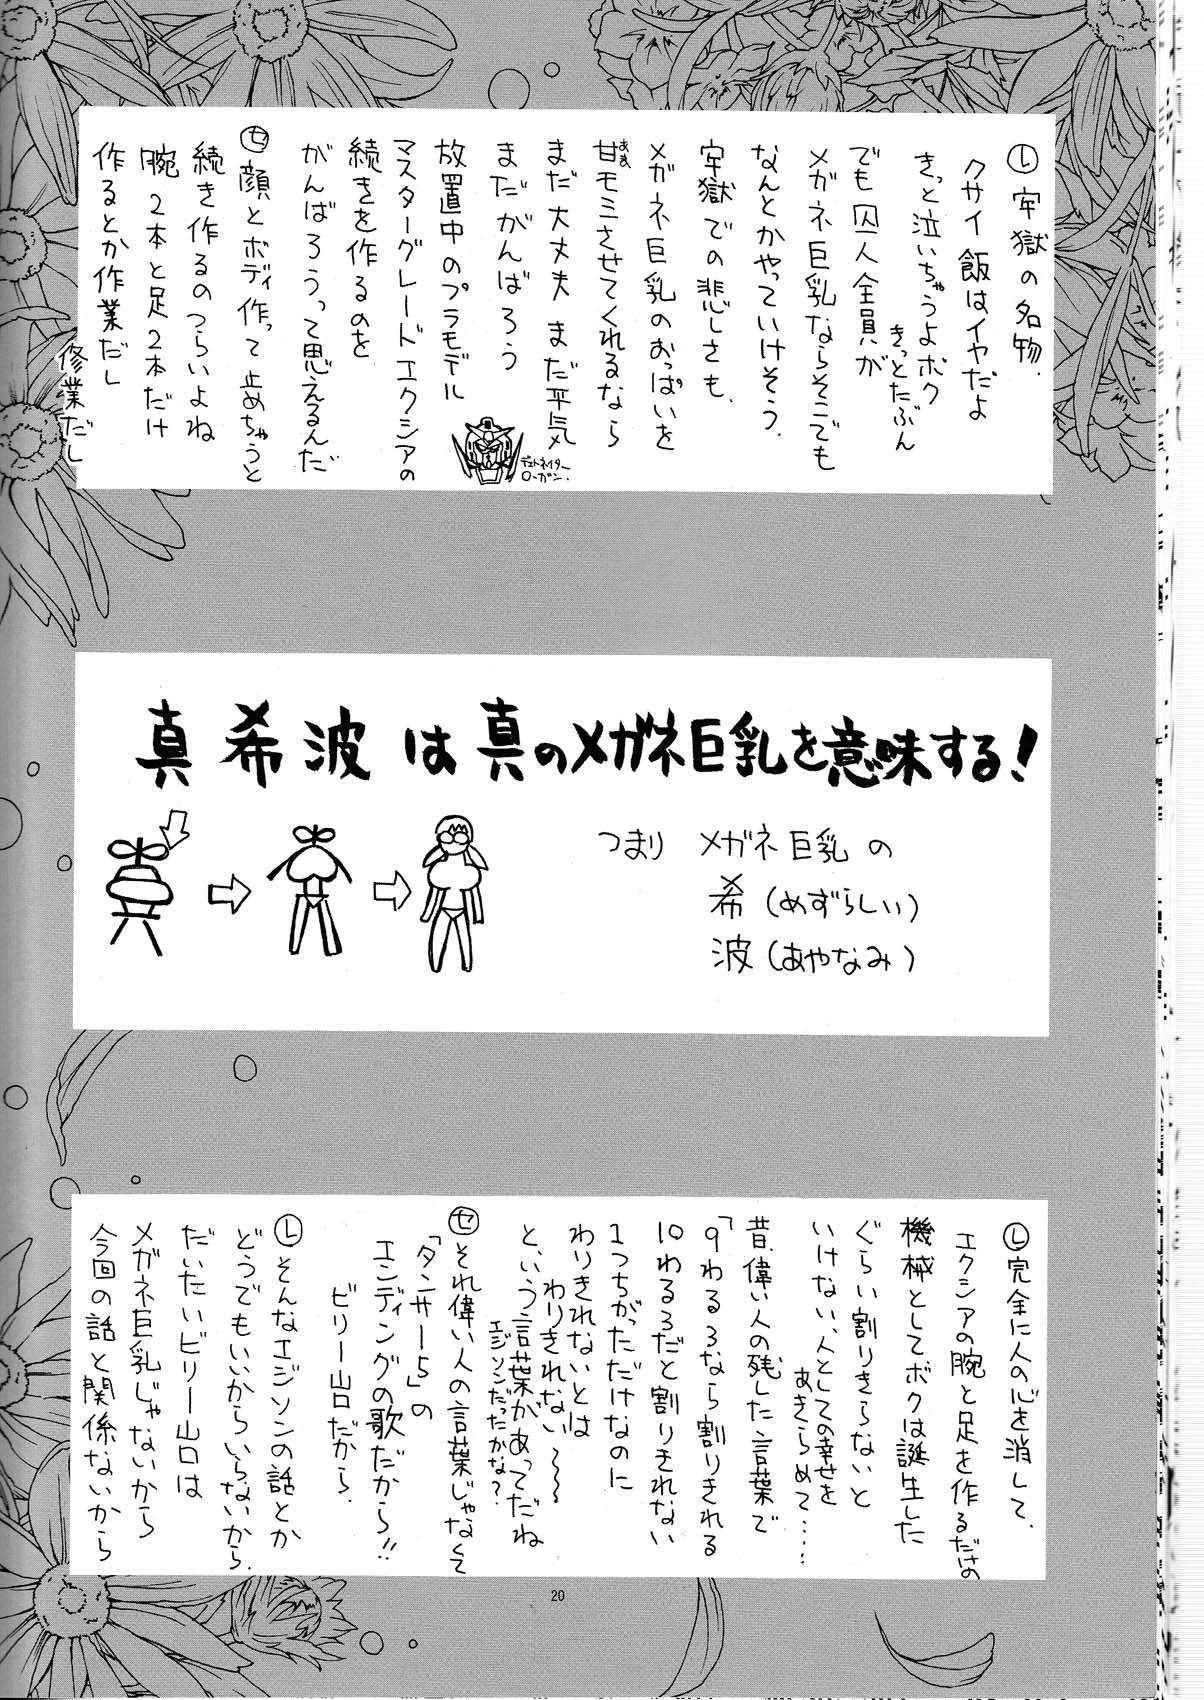 レ 牢獄の名物
クサイ飯はイヤだよ
きっと泣いちゃうよボク
きっとたぶん
でも囚人全員が
メガネ巨乳ならそこでも
なんとかやっていけそう.
牢獄での悲しさも.
メガネ巨乳のおっぱいを
甘モミさせてくれるなら
あま
まだ大丈夫 まだ平気
まだがんばろう
放置中のプラモデル
マスターグレードエクシアの
続きを作るのを
がんばろうって思えるんだ
デトネイター
ローガン.
セ 顔とボディ作って止めちゃうと
続き作るのつらいよね
腕2本と足2本だけ
作るとか作業だし
修業だし
真希波は真のメガネ巨乳を意味する!
つまり メガネ巨乳の
希(めずらしい)
波(あやなみ)
レ 完全に人の心を消して.
エクシアの腕と足を作るだけの
機械としてボクは誕生した
ぐらい割りきらないと
いけない、人としての幸せを
あきらめて……
昔、偉い人の残した言葉で
「9わる3なら割りきれる
10わる3だと割りきれない
1つちがっただけなのに
わりきれないとは
わりきれない〜〜
と、いう言葉があってだね
エジソンだったかな?
セ それ偉い人の言葉じゃなくて
「タンサー5」の
エンディングの歌だから!!
ビリー山口だから.
レ そんなエジソンの話とか
どうでもいいからいらないから.
だいたいビリー山口は
メガネ巨乳じゃないから
今回の話と関係ないから
20